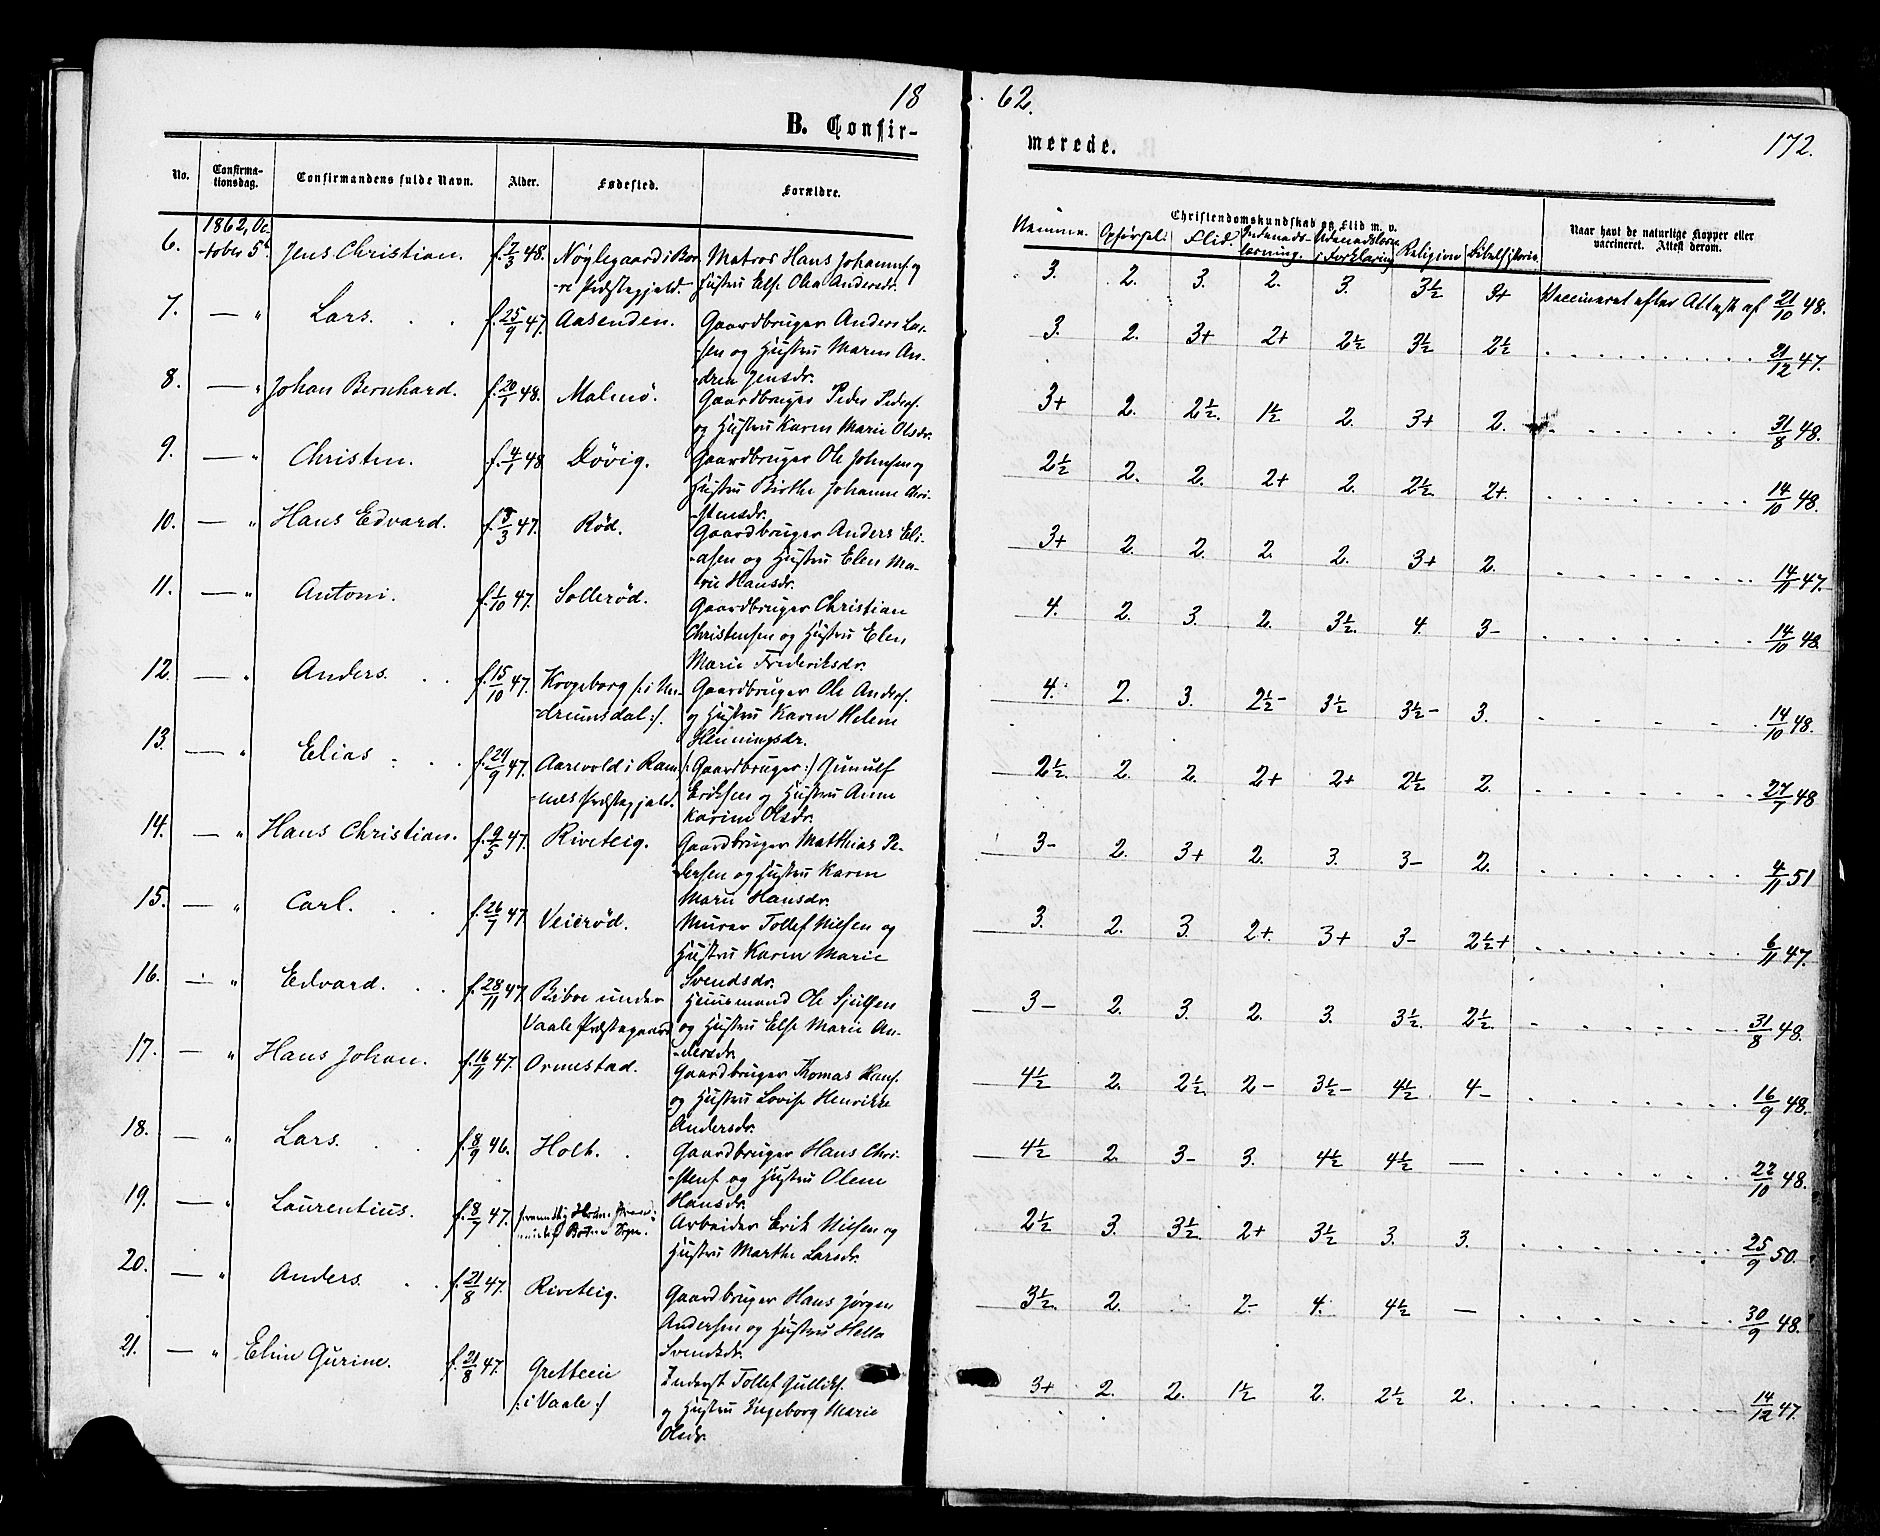 18
62.
B. Confir-
merede.
172.
No.
Confirma-
tionsdag.
Confirmandens fulde Navn.
Alder.
Fødested.
Forældre.
Christendomskundskab og Flid m. v.
Naar havt de naturlige Kopper eller
vaccineret. Attest derom.
Nemme. Opførsel. Flid. Indenads- læsning. Udenadslæsn. i Forklaring Religion Bibelhistorie.
1862, Oc-
6. -tober 5te Jens Christian. f. 7/3 48. Nøglegaard i Bor- Matros Hans Johannes. og
-re Præstegjeld. Hustru Else Olea Andersdr.
3. 2. 3. 2. 3. 3½ 3+ Vaccineret efter Attest af 21/10 48.
7. — " Lars. f. 25/9 47. Aasenden. Gaardbruger Anders Lar-
-sen og Hustru Maren An-
-drea Jensdr.
3. 2. 3+ 2+ 2½ 3½ 2½ 21/12 47.
8. — " Johan Bernhard. f. 20/1 48. Malmø. Gaardbruger Peder Peders.
og Hustru Karen Marie Olsdr.
3+ 2. 2½. 1½ 2. 3+ 2. 31/8 48.
9. — " Christen. f. 4/1 48 Døvig. Gaardbruger Ole Johnsen og
Hustru Birthe Johanne Chri-
-stensdr.
2½ 2. 2. 2+ 2. 2½. 2+ 14/10 48.
10. — " Hans Edvard. f. 8/3 47. Rød. Gaardbruger Anders Eli-
-asen og Hustru Elen Ma-
rie Hansdr.
3+ 2. 2. 2. 2. 3+ 2. 14/11 47.
11. — " Antoni. f. 1/10 47. Sollerød. Gaardbruger Christian
Christensen og Hustru Elen
Marie Frederiksdr.
4. 2. 3. 2. 3½. 4. 3- 14/10 48.
12. — " Anders. f. 15/10 47. Gaardbruger Ole Anders.
-drumsdal :/. og Hustru Karen Helene
Henningsdr.
4. 2. 3. 2½- 3½ 3½- 3. 14/10 48.
13. — " Elias f. 29/9 47. Aarevold i Ram- /: Gaardbruger :/ Gunulf
-næs Præstegjeld. Eriksen og Hustru Anne
Karine Olsdr.
2½. 2. 2. 2+ 2+ 2½ 2. 27/7 48
14. — " Hans Christian. f. 9/5 47. Riveteig. Gaardbruger Matthias Pe-
-dersen og Hustru Karen
Marie Hansdr.
3- 2. 3+ 2. 3. 3- 2. 4/11 51
15. — " Carl. f. 26/7 47 Veierød. Murer Tollef Nilsen og
Hustru Karen Marie
Svendsdr.
3. 2. 3. 2+. 3+ 3- 2½+ 6/11 47.
16. — " Edvard. f. 28/11 47 Bibo under Huusmand Ole
Vaale Præstegaard og Hustru Else Marie An-
-dersdr.
3- 2. 3. 2. 3. 3½. 2½. 31/8 48.
17. — " Hans Johan. f. 16/11 47. Ormestad. Gaardbruger Thomas Hans.
og Hustru Lovise Henrikke
Andersdr.
4½ 2. 2½. 2- 3½- 4½ 4- 16/9 48.
18. — " Lars. f. 8/9 46. Holt. Gaardbruger Hans Chri-
-stens og Hustru Olene
Hansdr.
4½ 2. 3- 3. 4½ 4½ — 22/10 48.
19. — " Laurentius. f. 8/7 47. Arbeider Erik Nilsen og
Botne Sogn. Hustru Marthe Larsdr.
2½ 3. 3½. 2+ 3½ 3. 3. 25/9 50.
20. — " Anders. f. 21/8 47. Riveteig. Gaardbruger Hans Jørgen
Andersen og Hustru Helle
Svendsdr.
3½. 2. 2- 4. 4½ — 30/9 48.
21. — " Eline Gurine. f. 21/8 47. Gretteeie Inderst Tollef Gulliks.
/: i Vaale :/ og Hustru Ingeborg Marie
Olsdr.
3+ 2. 2. 1½ 2. 2½ 2. 14/12 47.